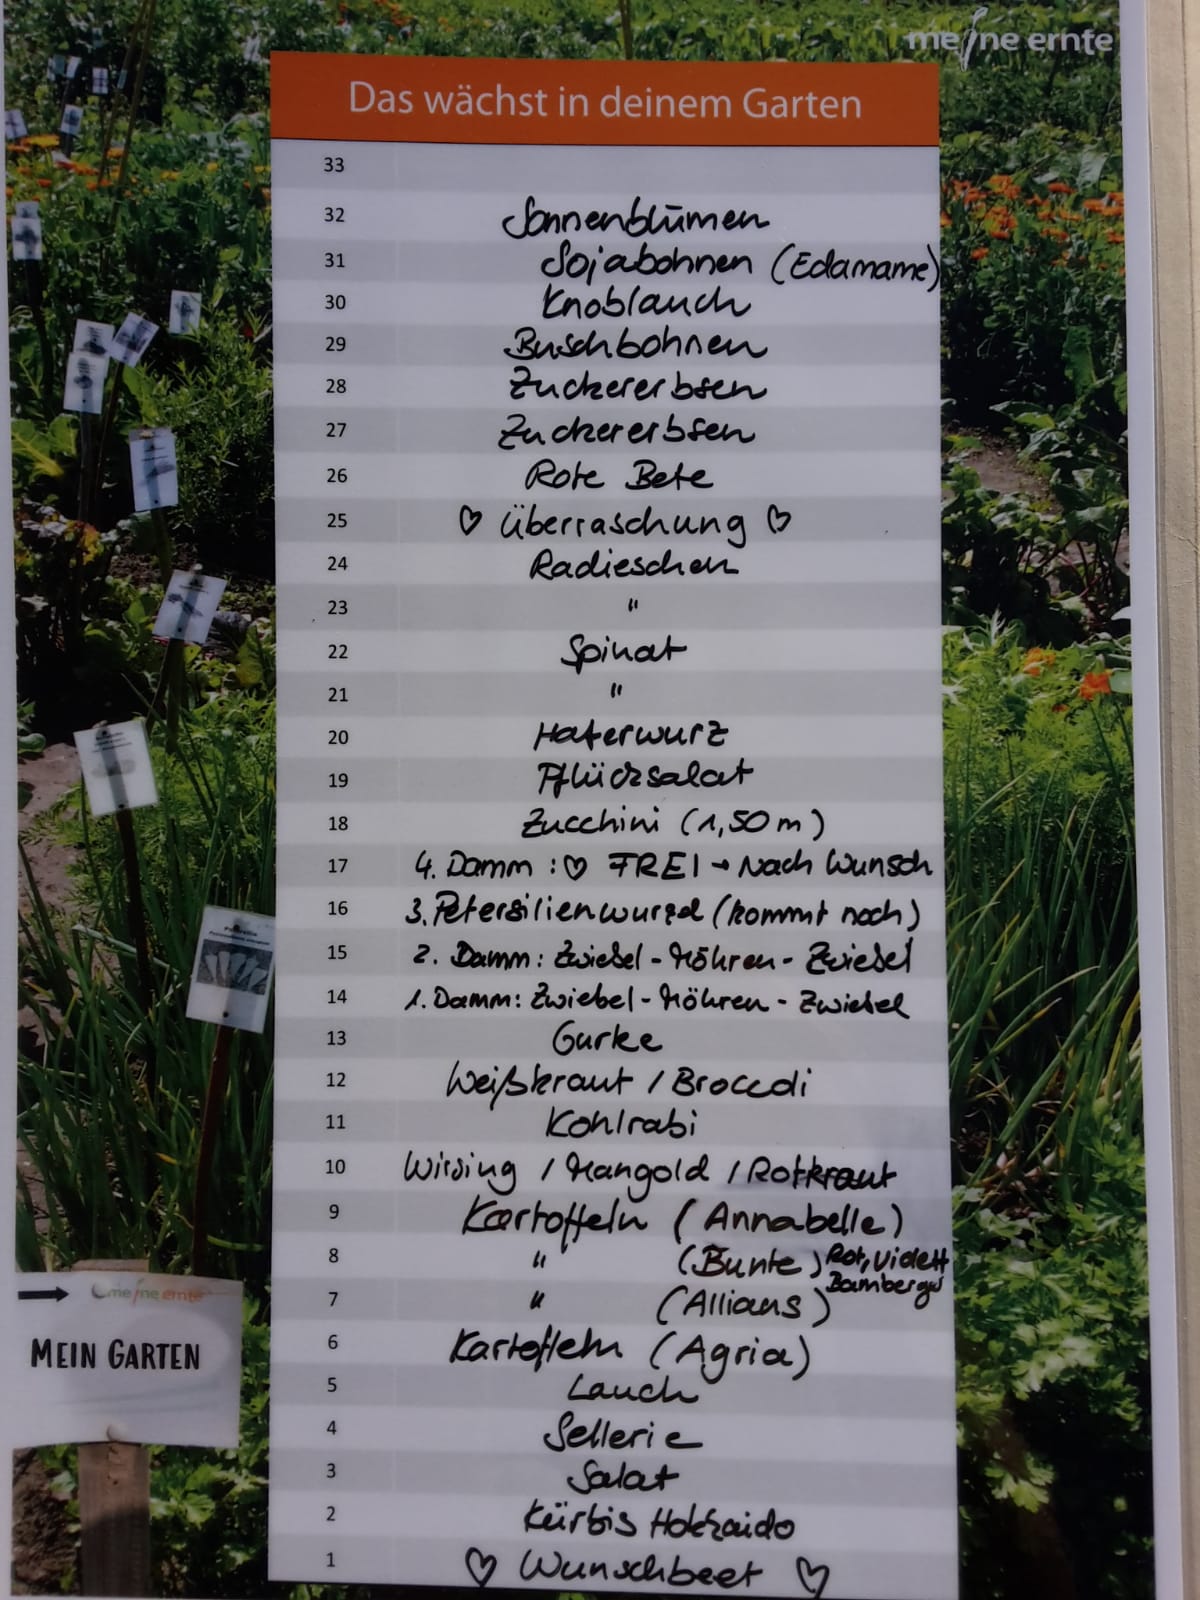 meine ernte
Das wächst in deinem Garten
33
32 Sonnenblumen
31 Sojabohnen (Edamame)
30 Knoblauch
29 Buschbohnen
28 Zuckererbsen
27 Zuckererbsen
26 Rote Bete
25 ♡ Überraschung ♡
24 Radieschen
23 "
22 Spinat
21 "
20 Haferwurz
19 Pflücksalat
18 Zucchini (1,50 m)
17 4. Damm : ♡ FREI → Nach Wunsch
16 3. Petersilienwurzel (kommt noch)
15 2. Damm: Zwiebel - Möhren - Zwiebel
14 1. Damm: Zwiebel - Möhren - Zwiebel
13 Gurke
12 Weißkraut / Broccoli
11 Kohlrabi
10 Wirsing / Mangold / Rotkraut
9 Kartoffeln (Annabelle)
8 " (Bunte) Rot, Violett
Bamberger
7 " (Allians)
6 Kartoffeln (Agria)
5 Lauch
4 Sellerie
3 Salat
2 Kürbis Hokkaido
1 ♡ Wunschbeet ♡
meine ernte
MEIN GARTEN